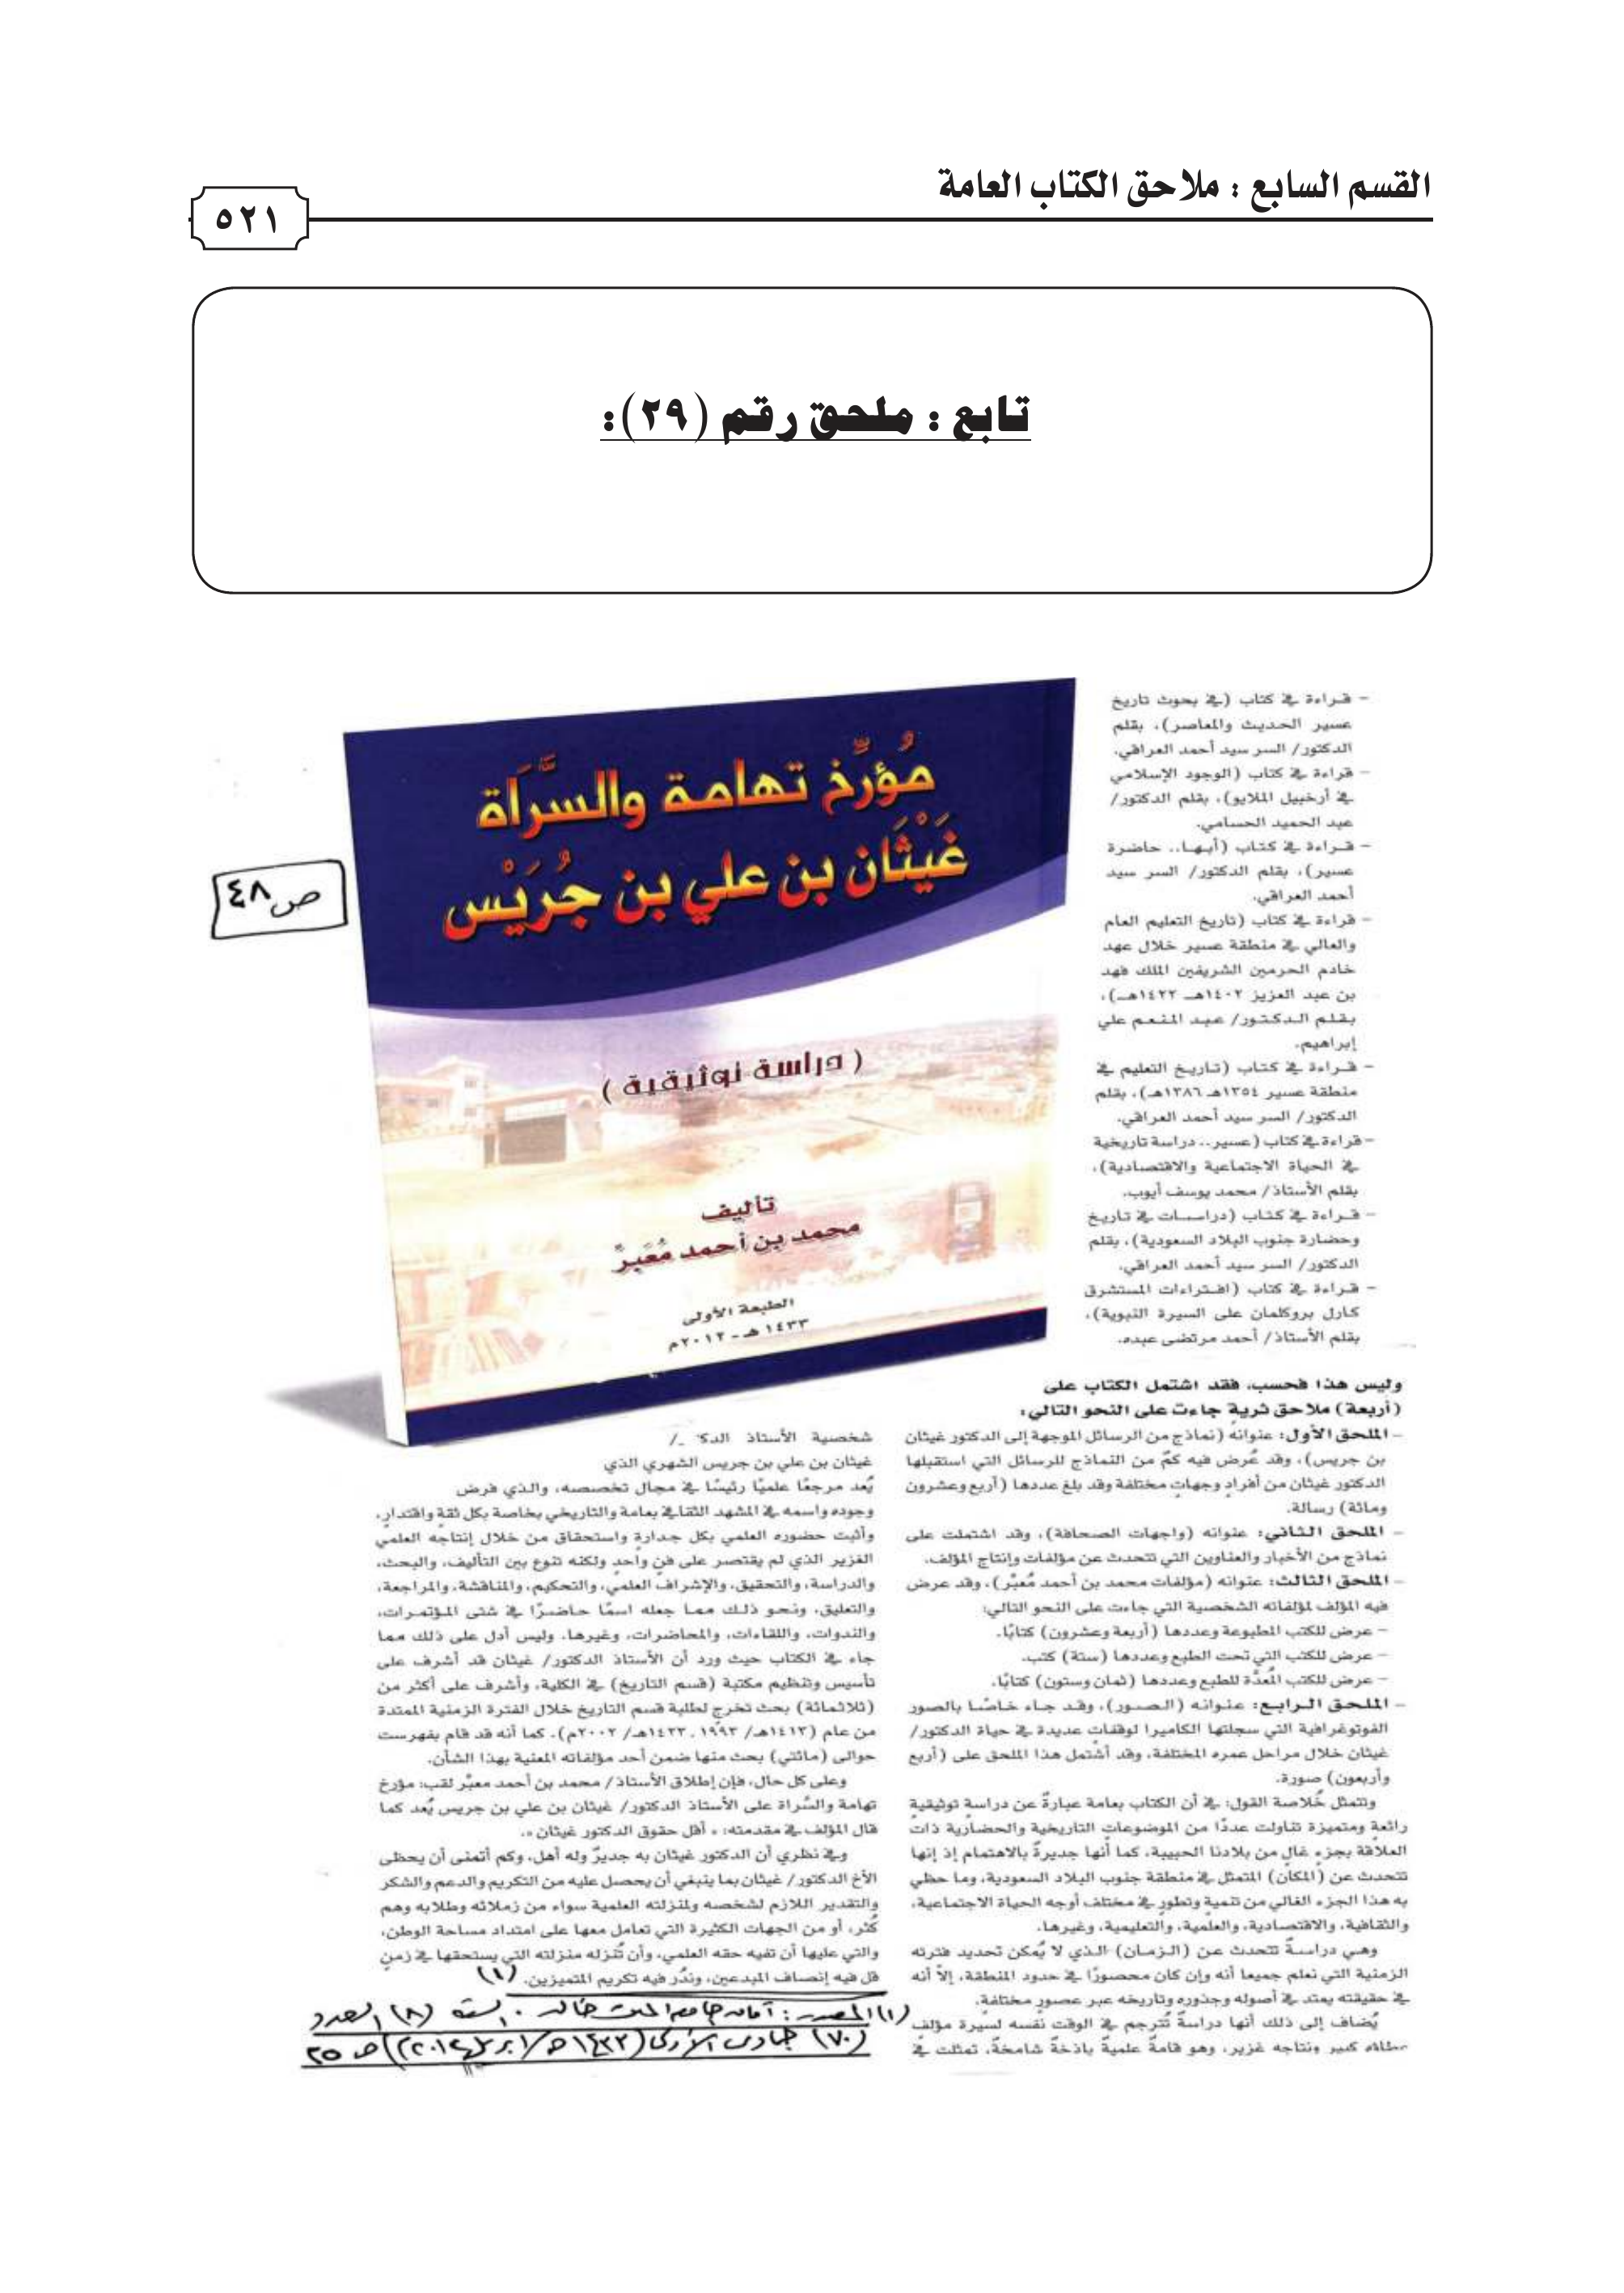 القسم السابع : ملاحق الكتاب العامة
٥٢١
تابع : ملحق رقم (٢٩):
- قراءة في كتاب (في بحوث تاريخ
عسير الحديث والمعاصر)، بقلم
الدكتور/ السر سيد أحمد العراقي.
- قراءة في كتاب (الوجود الإسلامي
في أرخبيل الملايو)، بقلم الدكتور/
عبد الحميد الحسامي.
- قراءة في كتاب (أبها.. حاضرة
عسير)، بقلم الدكتور/ السر سيد
أحمد العراقي.
- قراءة في كتاب (تاريخ التعليم العام
والعالي في منطقة عسير خلال عهد
خادم الحرمين الشريفين الملك فهد
بن عبد العزيز ١٤٠٢هـ ١٤٢٢هـ)،
بقلم الدكتور/ عبد المنعم علي
إبراهيم.
- قراءة في كتاب (تاريخ التعليم في
منطقة عسير ١٣٥٤هـ ١٣٨٦هـ)، بقلم
الدكتور/ السر سيد أحمد العراقي.
- قراءة في كتاب (عسير.. دراسة تاريخية
في الحياة الاجتماعية والاقتصادية)،
بقلم الأستاذ/ محمد يوسف أيوب.
- قراءة في كتاب (دراسات في تاريخ
وحضارة جنوب البلاد السعودية)، بقلم
الدكتور/ السر سيد أحمد العراقي.
- قراءة في كتاب (افتراءات المستشرق
كارل بروكلمان على السيرة النبوية)،
بقلم الأستاذ/ أحمد مرتضى عبده.
مُؤرِّخ تهامة والسَّرَاة
غَيْثَان بن علي بن جُرَيْس
(دراسة توثيقية)
تأليف
محمد بن أحمد مُعَبِّر
الطبعة الأولى
١٤٣٣هـ - ٢٠١٢م
ص٤٨
وليس هذا فحسب، فقد اشتمل الكتاب على
(أربعة) ملاحق ثرية جاءت على النحو التالي:
- الملحق الأول: عنوانه (نماذج من الرسائل الموجهة إلى الدكتور غيثان
بن جريس)، وقد عُرض فيه كمٌ من النماذج للرسائل التي استقبلها
الدكتور غيثان من أفرادٍ وجهاتٍ مختلفة وقد بلغ عددها (أربع وعشرون
ومائة) رسالة.
- الملحق الثاني: عنوانه (واجهات الصحافة)، وقد اشتملت على
نماذج من الأخبار والعناوين التي تتحدث عن مؤلفات وإنتاج المؤلف.
- الملحق الثالث: عنوانه (مؤلفات محمد بن أحمد مُعبّر)، وقد عرض
فيه المؤلف لمؤلفاته الشخصية التي جاءت على النحو التالي:
- عرض للكتب المطبوعة وعددها (أربعة وعشرون) كتابًا.
- عرض للكتب التي تحت الطبع وعددها (ستة) كتب.
- عرض للكتب المُعدَّة للطبع وعددها (ثمان وستون) كتابًا.
- الملحق الرابع: عنوانه (الصور)، وقد جاء خاصًا بالصور
الفوتوغرافية التي سجلتها الكاميرا لوقفات عديدة في حياة الدكتور/
غيثان خلال مراحل عمره المختلفة، وقد أشتمل هذا الملحق على (أربع
وأربعون) صورة.
وتتمثل خُلاصة القول: في أن الكتاب بعامة عبارةٌ عن دراسةٍ توثيقيةٍ
رائعةٍ ومتميزة تناولت عددًا من الموضوعات التاريخية والحضارية ذات
العلاقة بجزءٍ غالٍ من بلادنا الحبيبة، كما أنها جديرةٌ بالاهتمام إذ إنها
تتحدث عن (المكان) المتمثل في منطقة جنوب البلاد السعودية، وما حظي
به هذا الجزء الغالي من تنميةٍ وتطورٍ في مختلف أوجه الحياة الاجتماعية،
والثقافية، والاقتصادية، والعلمية، والتعليمية، وغيرها.
وهي دراسةٌ تتحدث عن (الزمان) الذي لا يُمكن تحديد فترته
الزمنية التي نعلم جميعا أنه وإن كان محصورًا في حدود المنطقة، إلاَّ أنه
في حقيقته يمتد في أصوله وجذوره وتاريخه عبر عصورٍ مختلفةٍ.
يُضاف إلى ذلك أنها دراسةٌ تُترجم في الوقت نفسه لسيرة مؤلفٍ
كبير ونتاجه غزير، وهو قامةٌ علميةٌ باذخةٌ شامخةٌ، تمثلت في
شخصية الأستاذ
غيثان بن علي بن جريس الشهري الذي
يُعد مرجعًا علميًا رئيسًا في مجال تخصصه، والذي فرض
وجوده واسمه في المشهد الثقافي بعامة والتاريخي بخاصة بكل ثقةٍ واقتدارٍ،
وأثبت حضوره العلمي بكل جدارةٍ واستحقاق من خلال إنتاجه العلمي
الغزير الذي لم يقتصر على فنٍ واحدٍ ولكنه تنوع بين التأليف، والبحث،
والدراسة، والتحقيق، والإشراف العلمي، والتحكيم، والمناقشة، والمراجعة،
والتعليق، ونحو ذلك مما جعله اسمًا حاضرًا في شتى المؤتمرات،
والندوات، واللقاءات، والمحاضرات، وغيرها. وليس أدل على ذلك مما
جاء في الكتاب حيث ورد أن الأستاذ الدكتور/ غيثان قد أشرف على
تأسيس وتنظيم مكتبة (قسم التاريخ) في الكلية، وأشرف على أكثر من
(ثلاثمائة) بحث تخرج لطلبة قسم التاريخ خلال الفترة الزمنية الممتدة
من عام (١٤١٣هـ/ ١٩٩٣ . ١٤٢٣هـ/ ٢٠٠٢م). كما أنه قد قام بفهرست
حوالى (مائتي) بحث منها ضمن أحد مؤلفاته المعنية بهذا الشأن.
وعلى كل حال، فإن إطلاق الأستاذ/ محمد بن أحمد معبّر لقب: مؤرخ
تهامة والسَّراة على الأستاذ الدكتور/ غيثان بن علي بن جريس يُعد كما
قال المؤلف في مقدمته: « أقل حقوق الدكتور غيثان ».
وفي نظري أن الدكتور غيثان به جديرٌ وله أهل، وكم أتمنى أن يحظى
الأخ الدكتور/ غيثان بما ينبغي أن يحصل عليه من التكريم والدعم والشكر
والتقدير اللازم لشخصه ولمنزلته العلمية سواء من زملائه وطلابه وهم
كُثر، أو من الجهات الكثيرة التي تعامل معها على امتداد مساحة الوطن،
والتي عليها أن تفيه حقه العلمي، وأن تُنزله منزلته التي يستحقها في زمنٍ
قل فيه إنصاف المبدعين، وندُر فيه تكريم المتميزين. (١)
(١) المصدر : آفاق جامعة الملك خالد . السنة (٨) العدد
(٧٠) جمادى الأولى (١٤٣٣هـ/ابريل ٢٠١٢) ص ٢٥